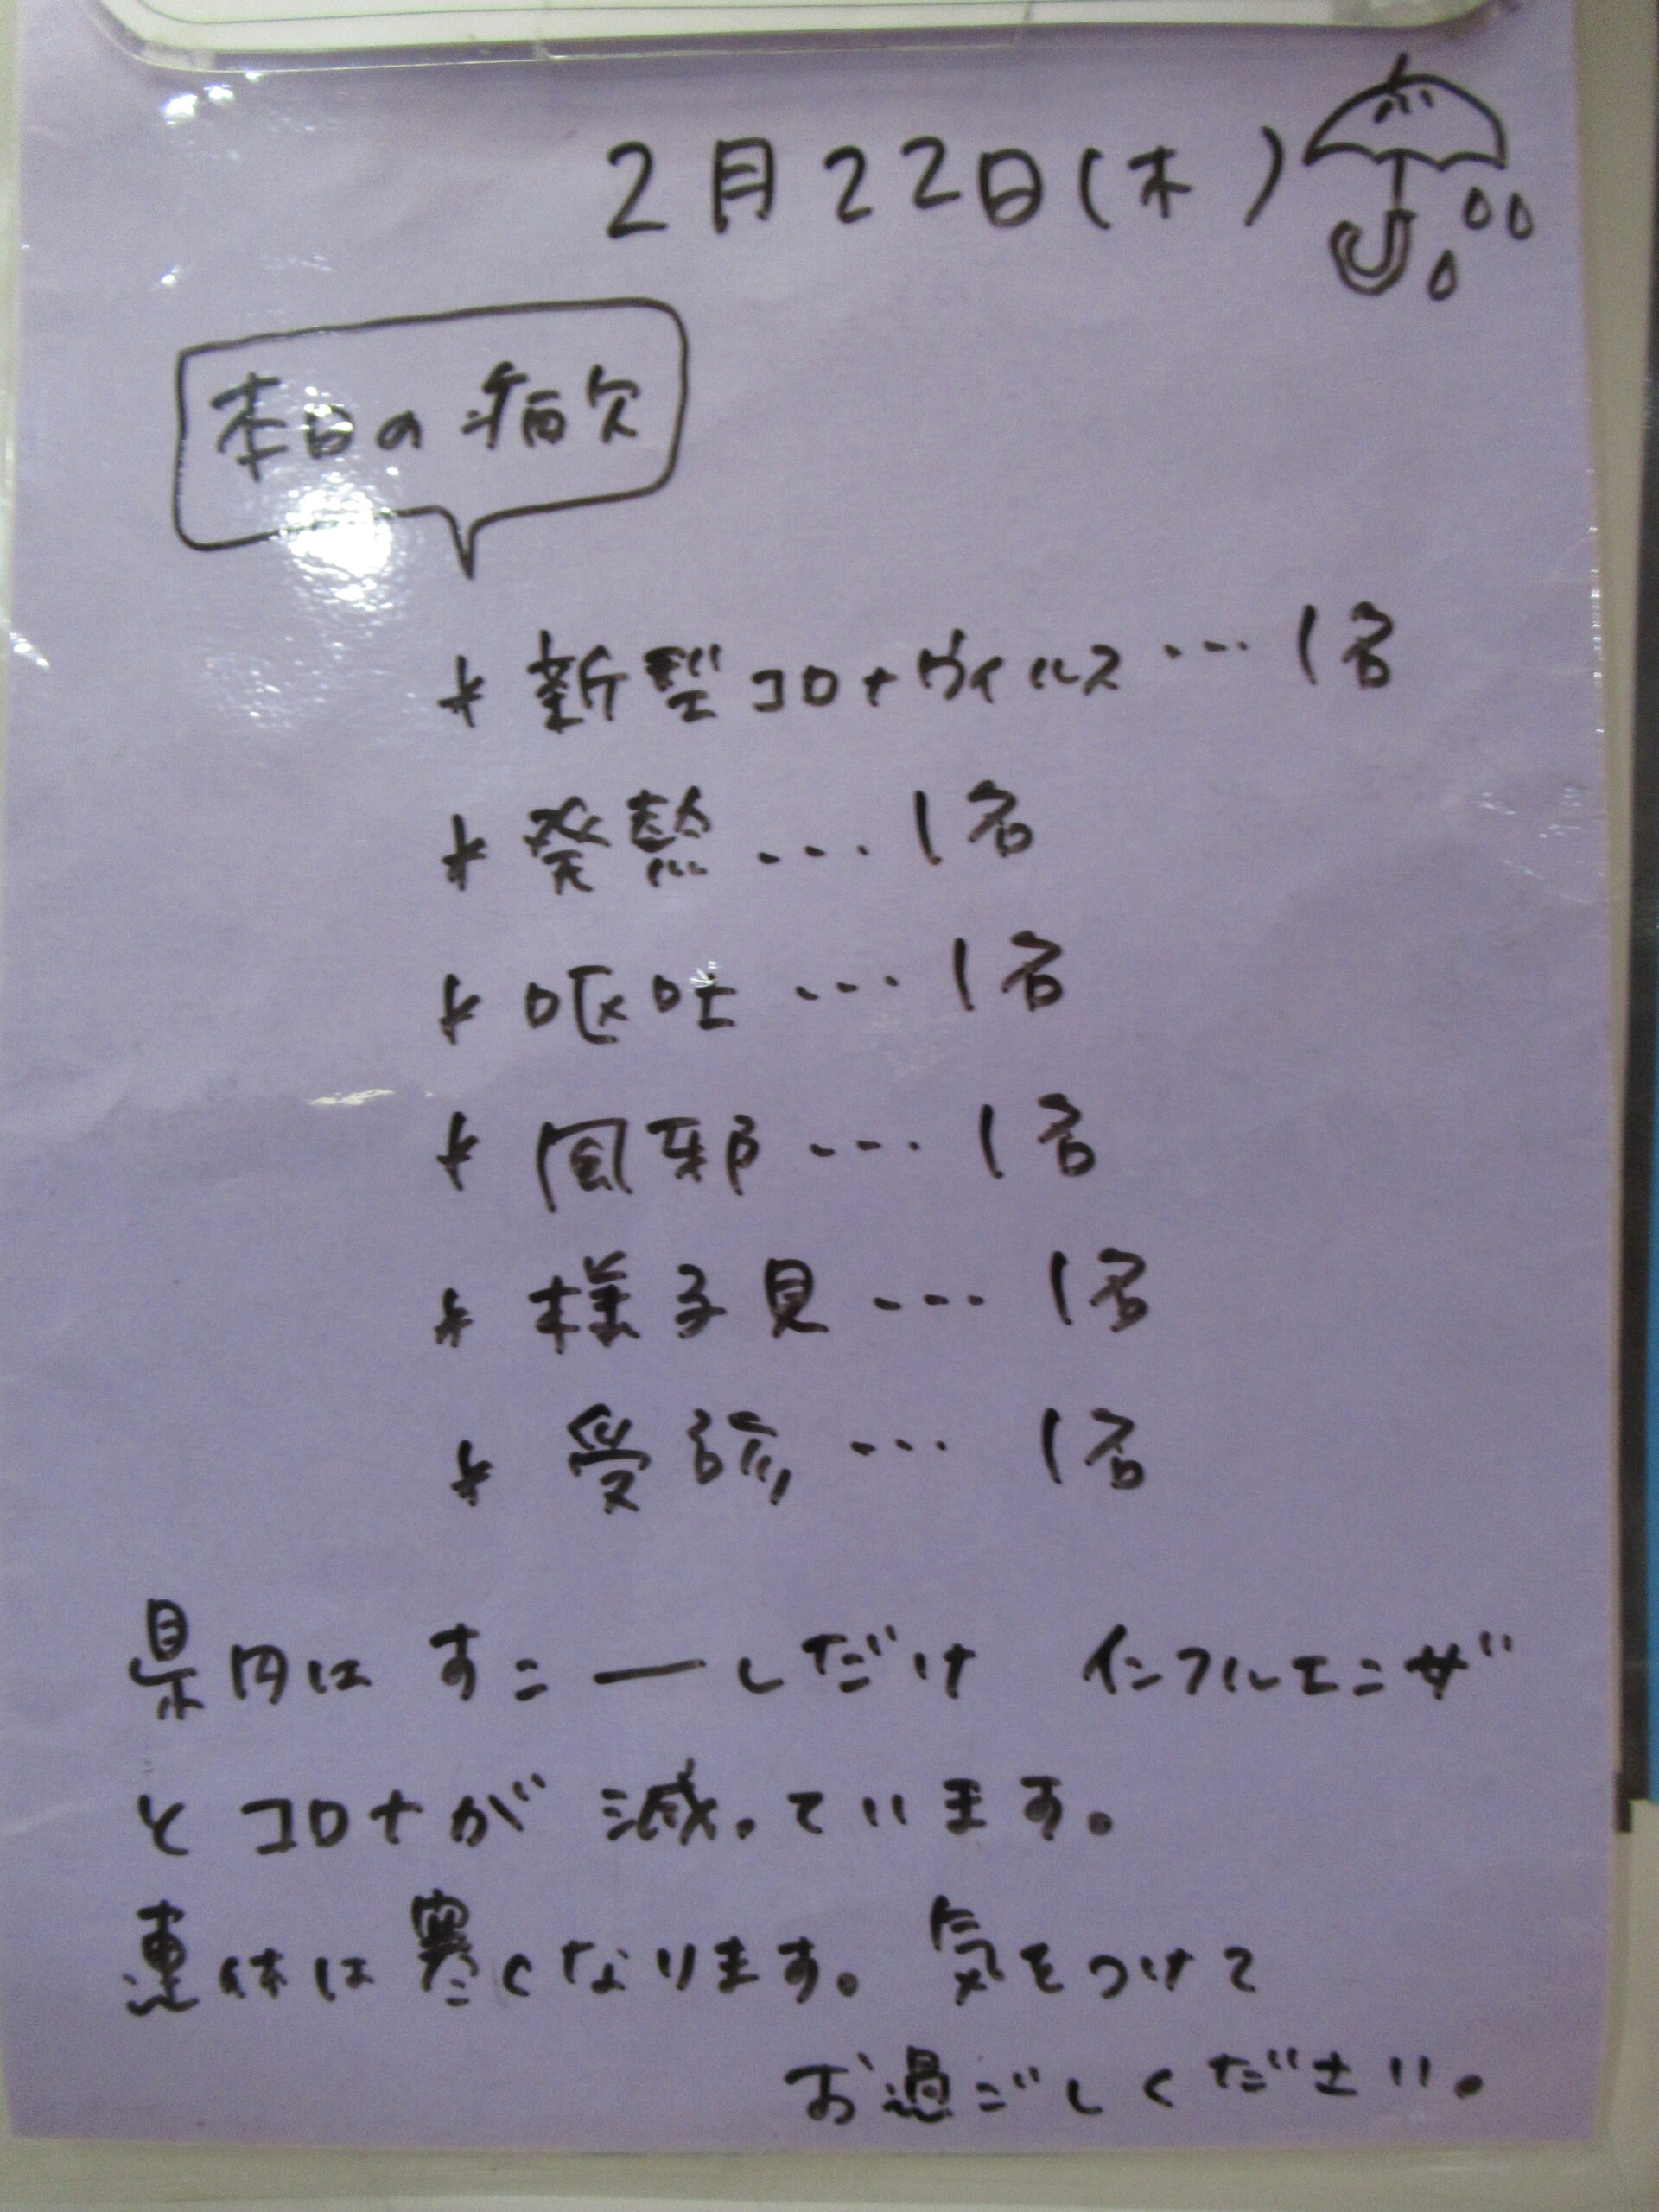 2月22日(木)
本日の病欠
* 新型コロナヴィルス…1名
* 発熱…1名
* 嘔吐…1名
* 風邪…1名
* 様子見…1名
* 受診…1名
県内は すこーしだけ インフルエンザ
と コロナが 減っています。
連休は 寒くなります。 気をつけて
お過ごしください。